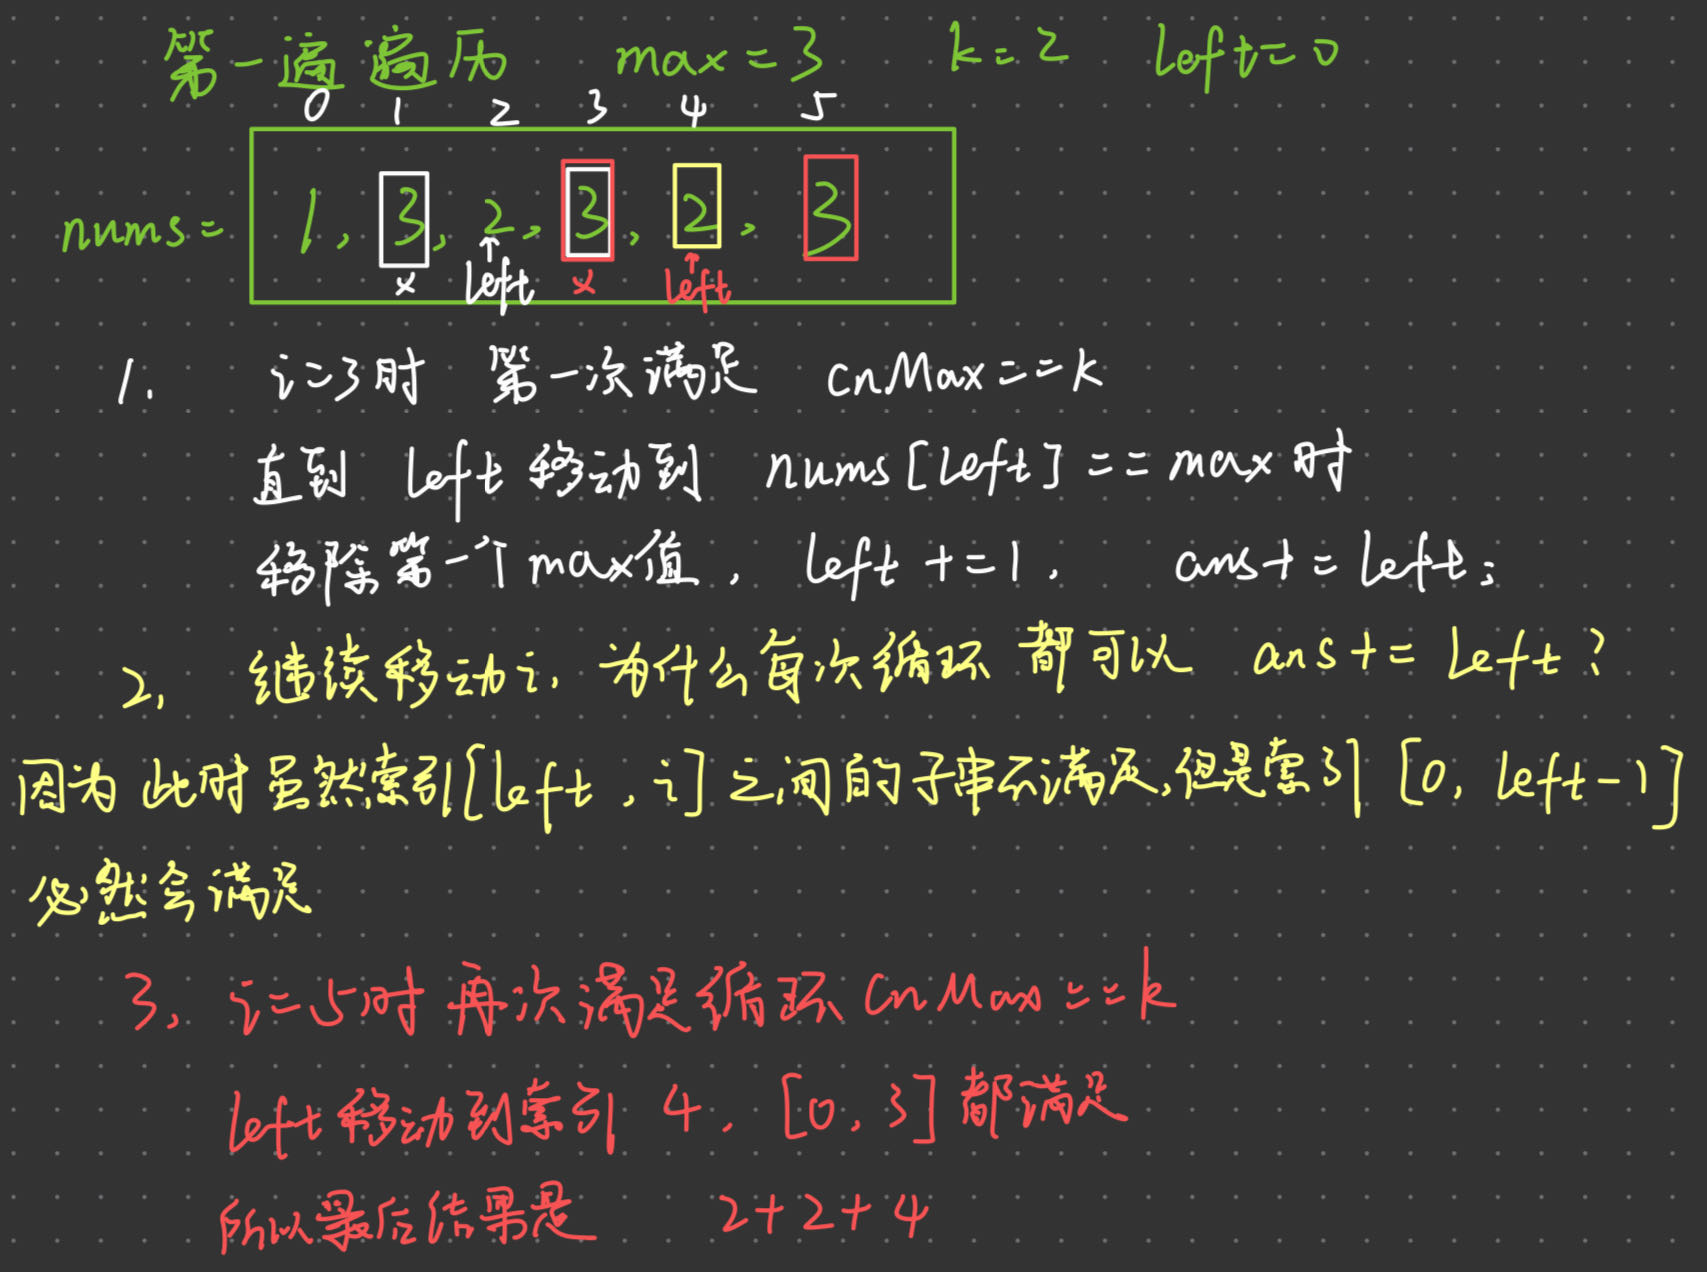 第一遍遍历 max=3 k=2 left=0
0 1 2 3 4 5
nums= 1, 3, 2, 3, 2, 3
x left x left
1. i=3时 第一次满足 cnMax==k
直到 left 移动到 nums[left]==max时
移除第一个max值, left+=1, ans+=left;
2, 继续移动i, 为什么每次循环都可以 ans+=left?
因为此时虽然索引[left,i]之间的子串不满足,但是索引[0,left-1]
必然会满足
3, i=5时再次满足循环cnMax==k
left移动到索引4, [0,3]都满足
所以最后结果是 2+2+4